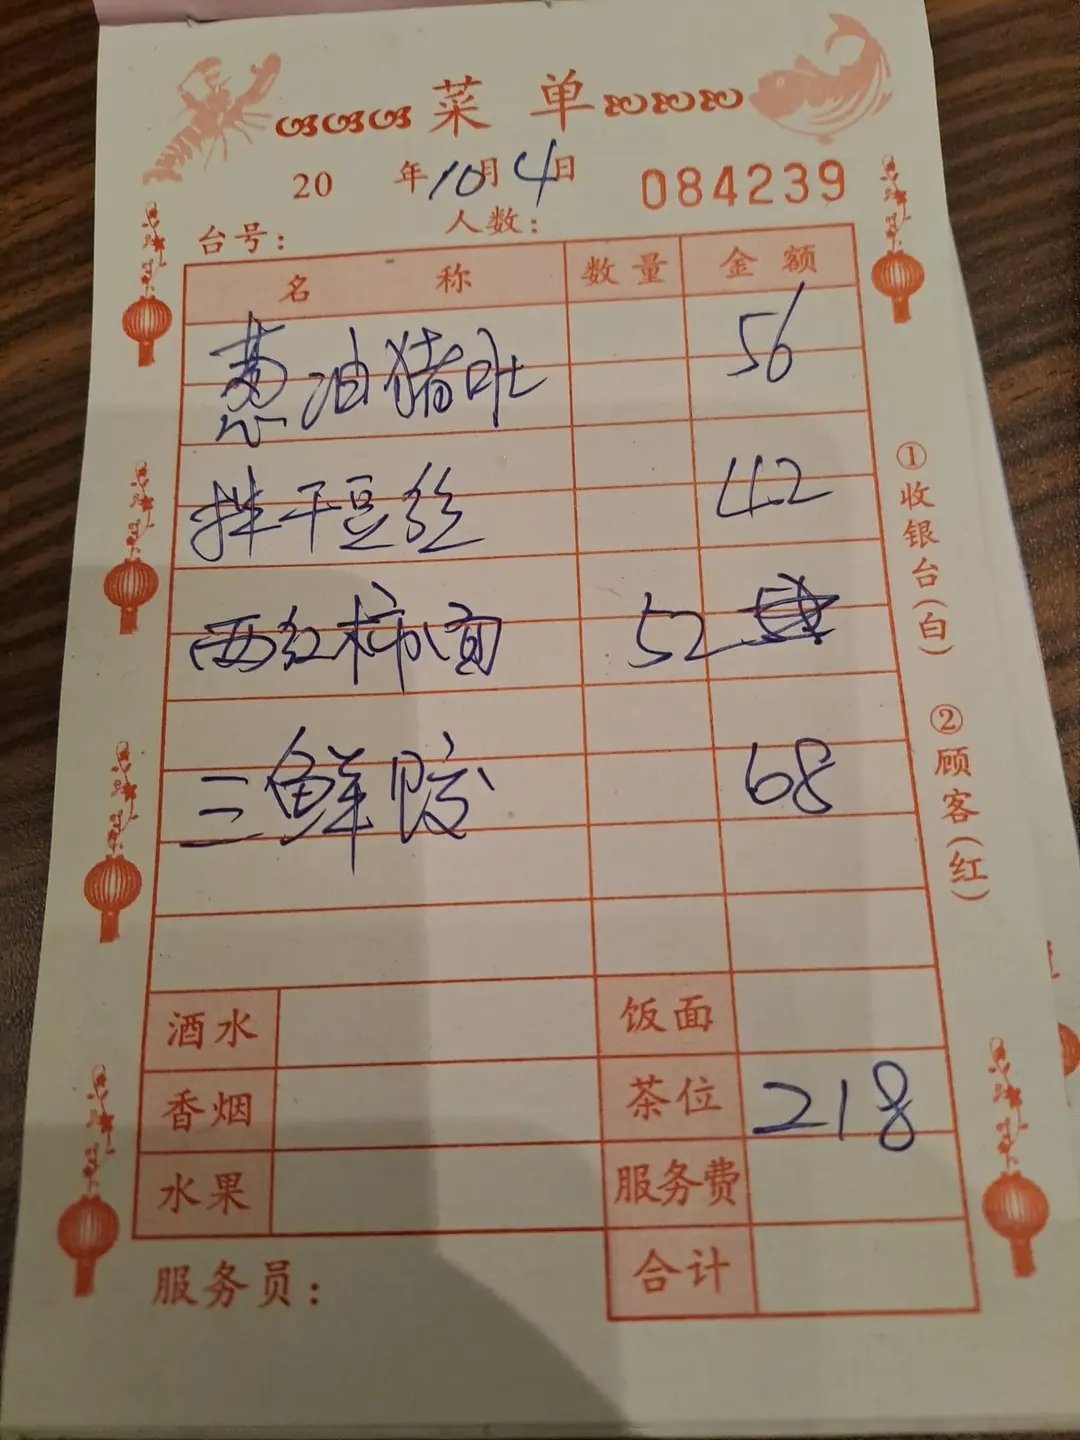 菜 单
20 年10月4日 084239
台号： 人数：
名 称 数量 金额
葱油猪肚 56
拌干豆丝 42
西红柿面 52
三鲜饺 68
①收银台（白）
②顾客（红）
酒水 饭面
香烟 茶位 218
水果 服务费
服务员： 合计